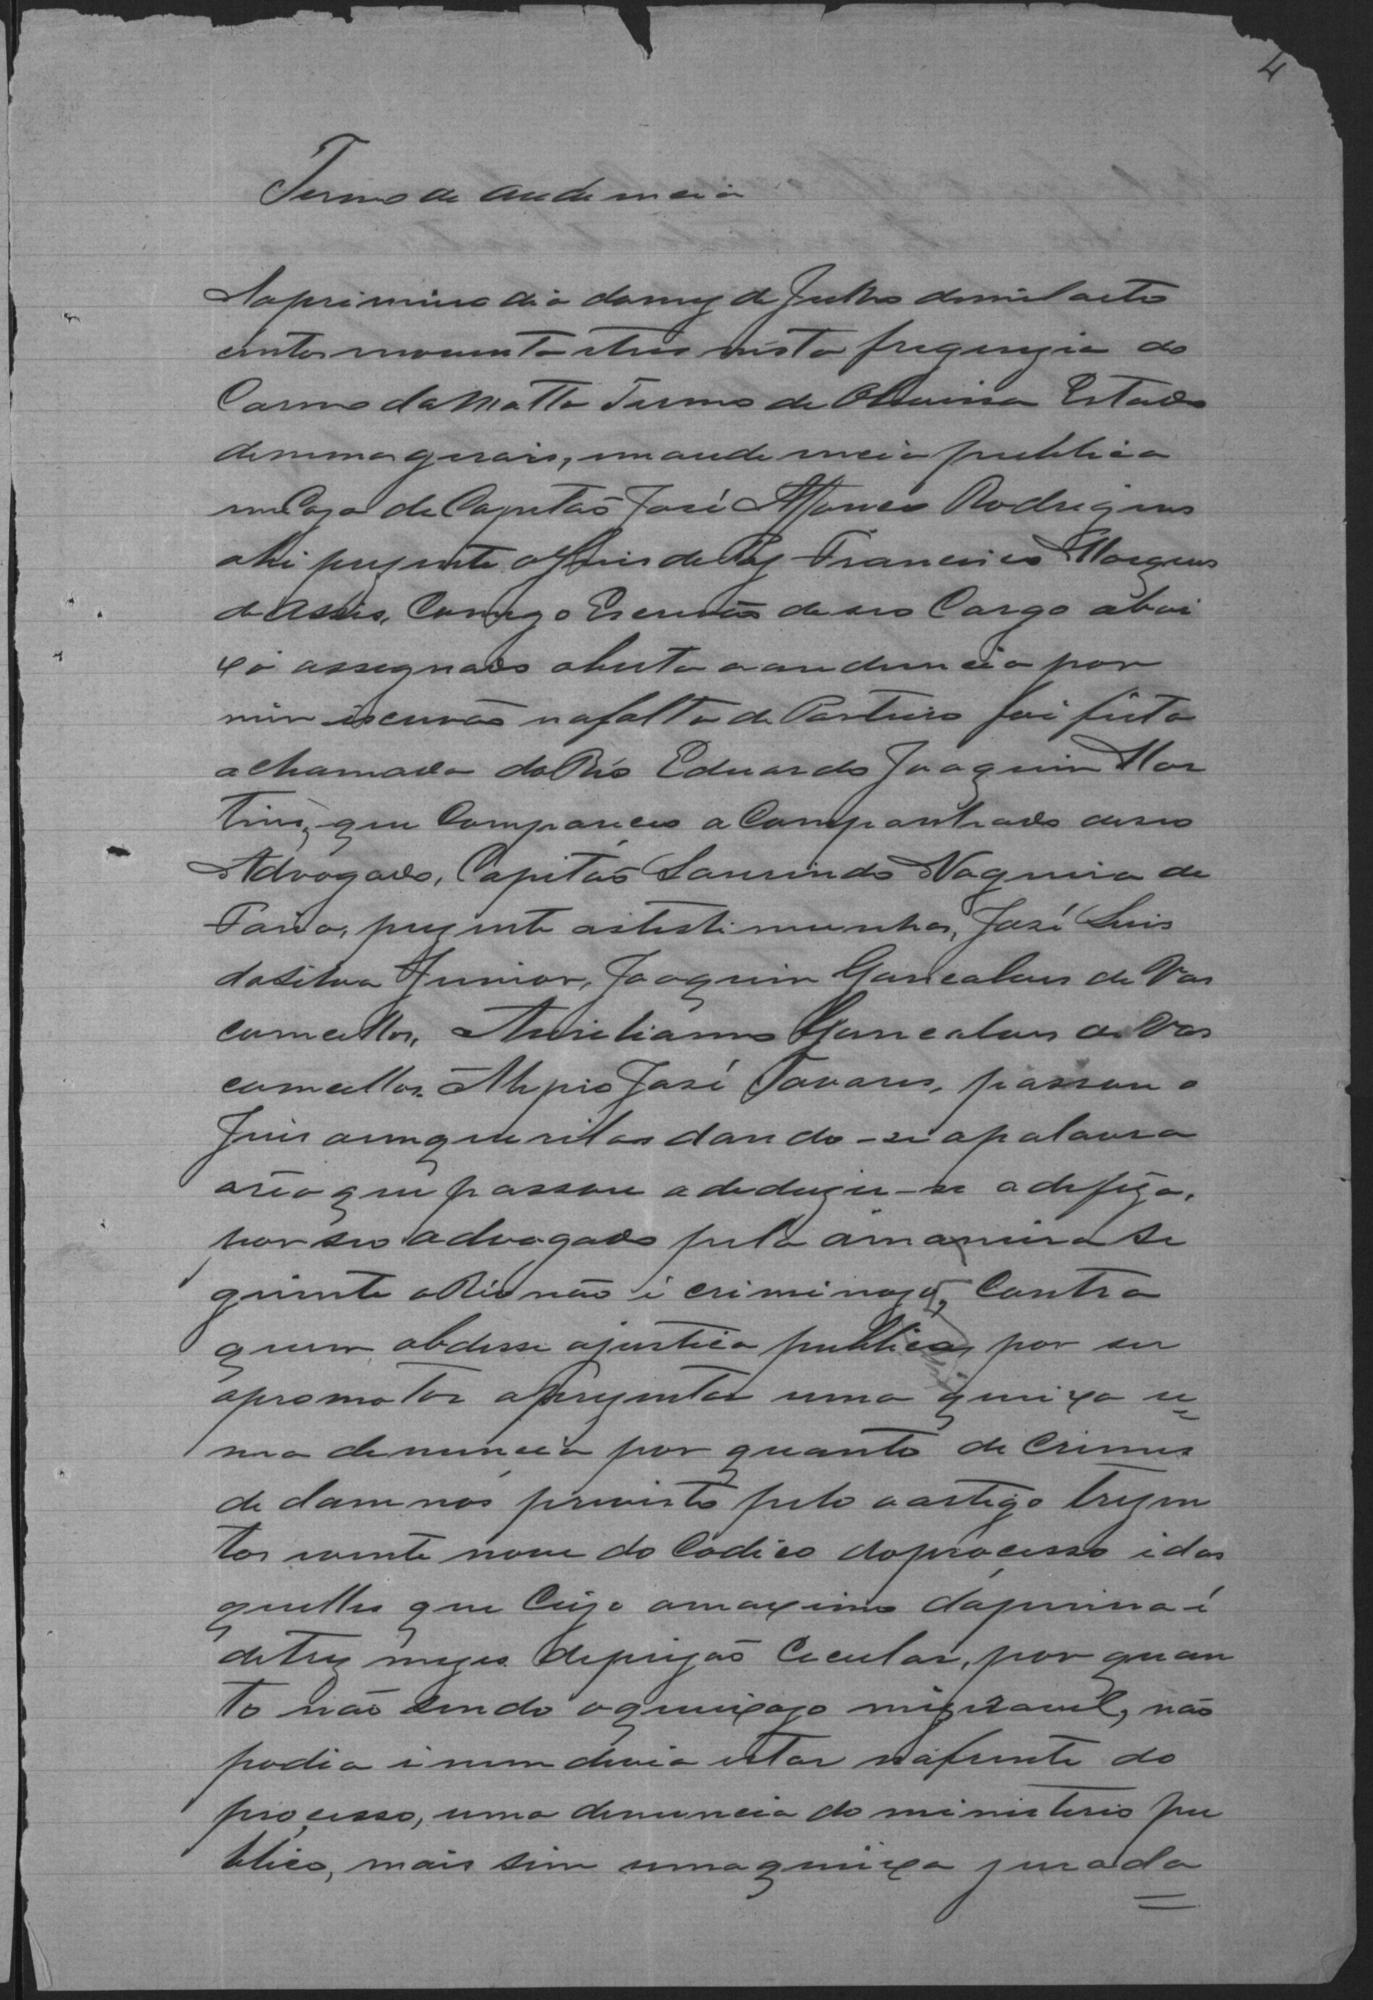 4
Termo de audencia
Ao primeiro dia do mez de Julho de mil oito
centos noventa e tres nesta freguezia do
Carmo da Matta Termo de Oliveira Estado
de minas gerais, em audencia publica
em Caza de Capitão José Affonco Rodrigues
ahi prezente o Juis de Paz Francisco Marques
de Assis, Comigo Escrivão de seo Cargo abai
xo assegnado aberta a audencia por
mim escrivão na falta de Porteiro foi feita
a chamada do Réo Eduardo Joaquim Mar
tins, que Compareceo a Companhado de seo
Advogado, Capitão Laurindo Nogueira de
Faria, prezente as testimunhas, José Luis
da Silva Junior, Joaquim Goncalves de Vas
comcellos, Aureliano Goncalves de Vas
comcellos. Alipio José Tavares, passou o
Juis a enquerilas dando-se a palavra
a réo que passou a deduzir-se a defeza,
por seo advogado pela a maneira se
guinte o Réo não é criminozo, Contra
quem abdesse a justica publica, por seu
a promotor aprezentar uma queixa u=
ma denuncia por quanto de Crimes
de damnos previsto pelo o artigo trezen
tos vinte nove do Codico do processo é das
quelles que Cujo a maximo da penna é
de trez mezes de prizão Cecular, por quan
to não sendo o queixozo mizeravel, não
podia e nem devia estar na frente do
processo, uma denuncia do ministerio pu
blico, mais sim uma queixa jurada